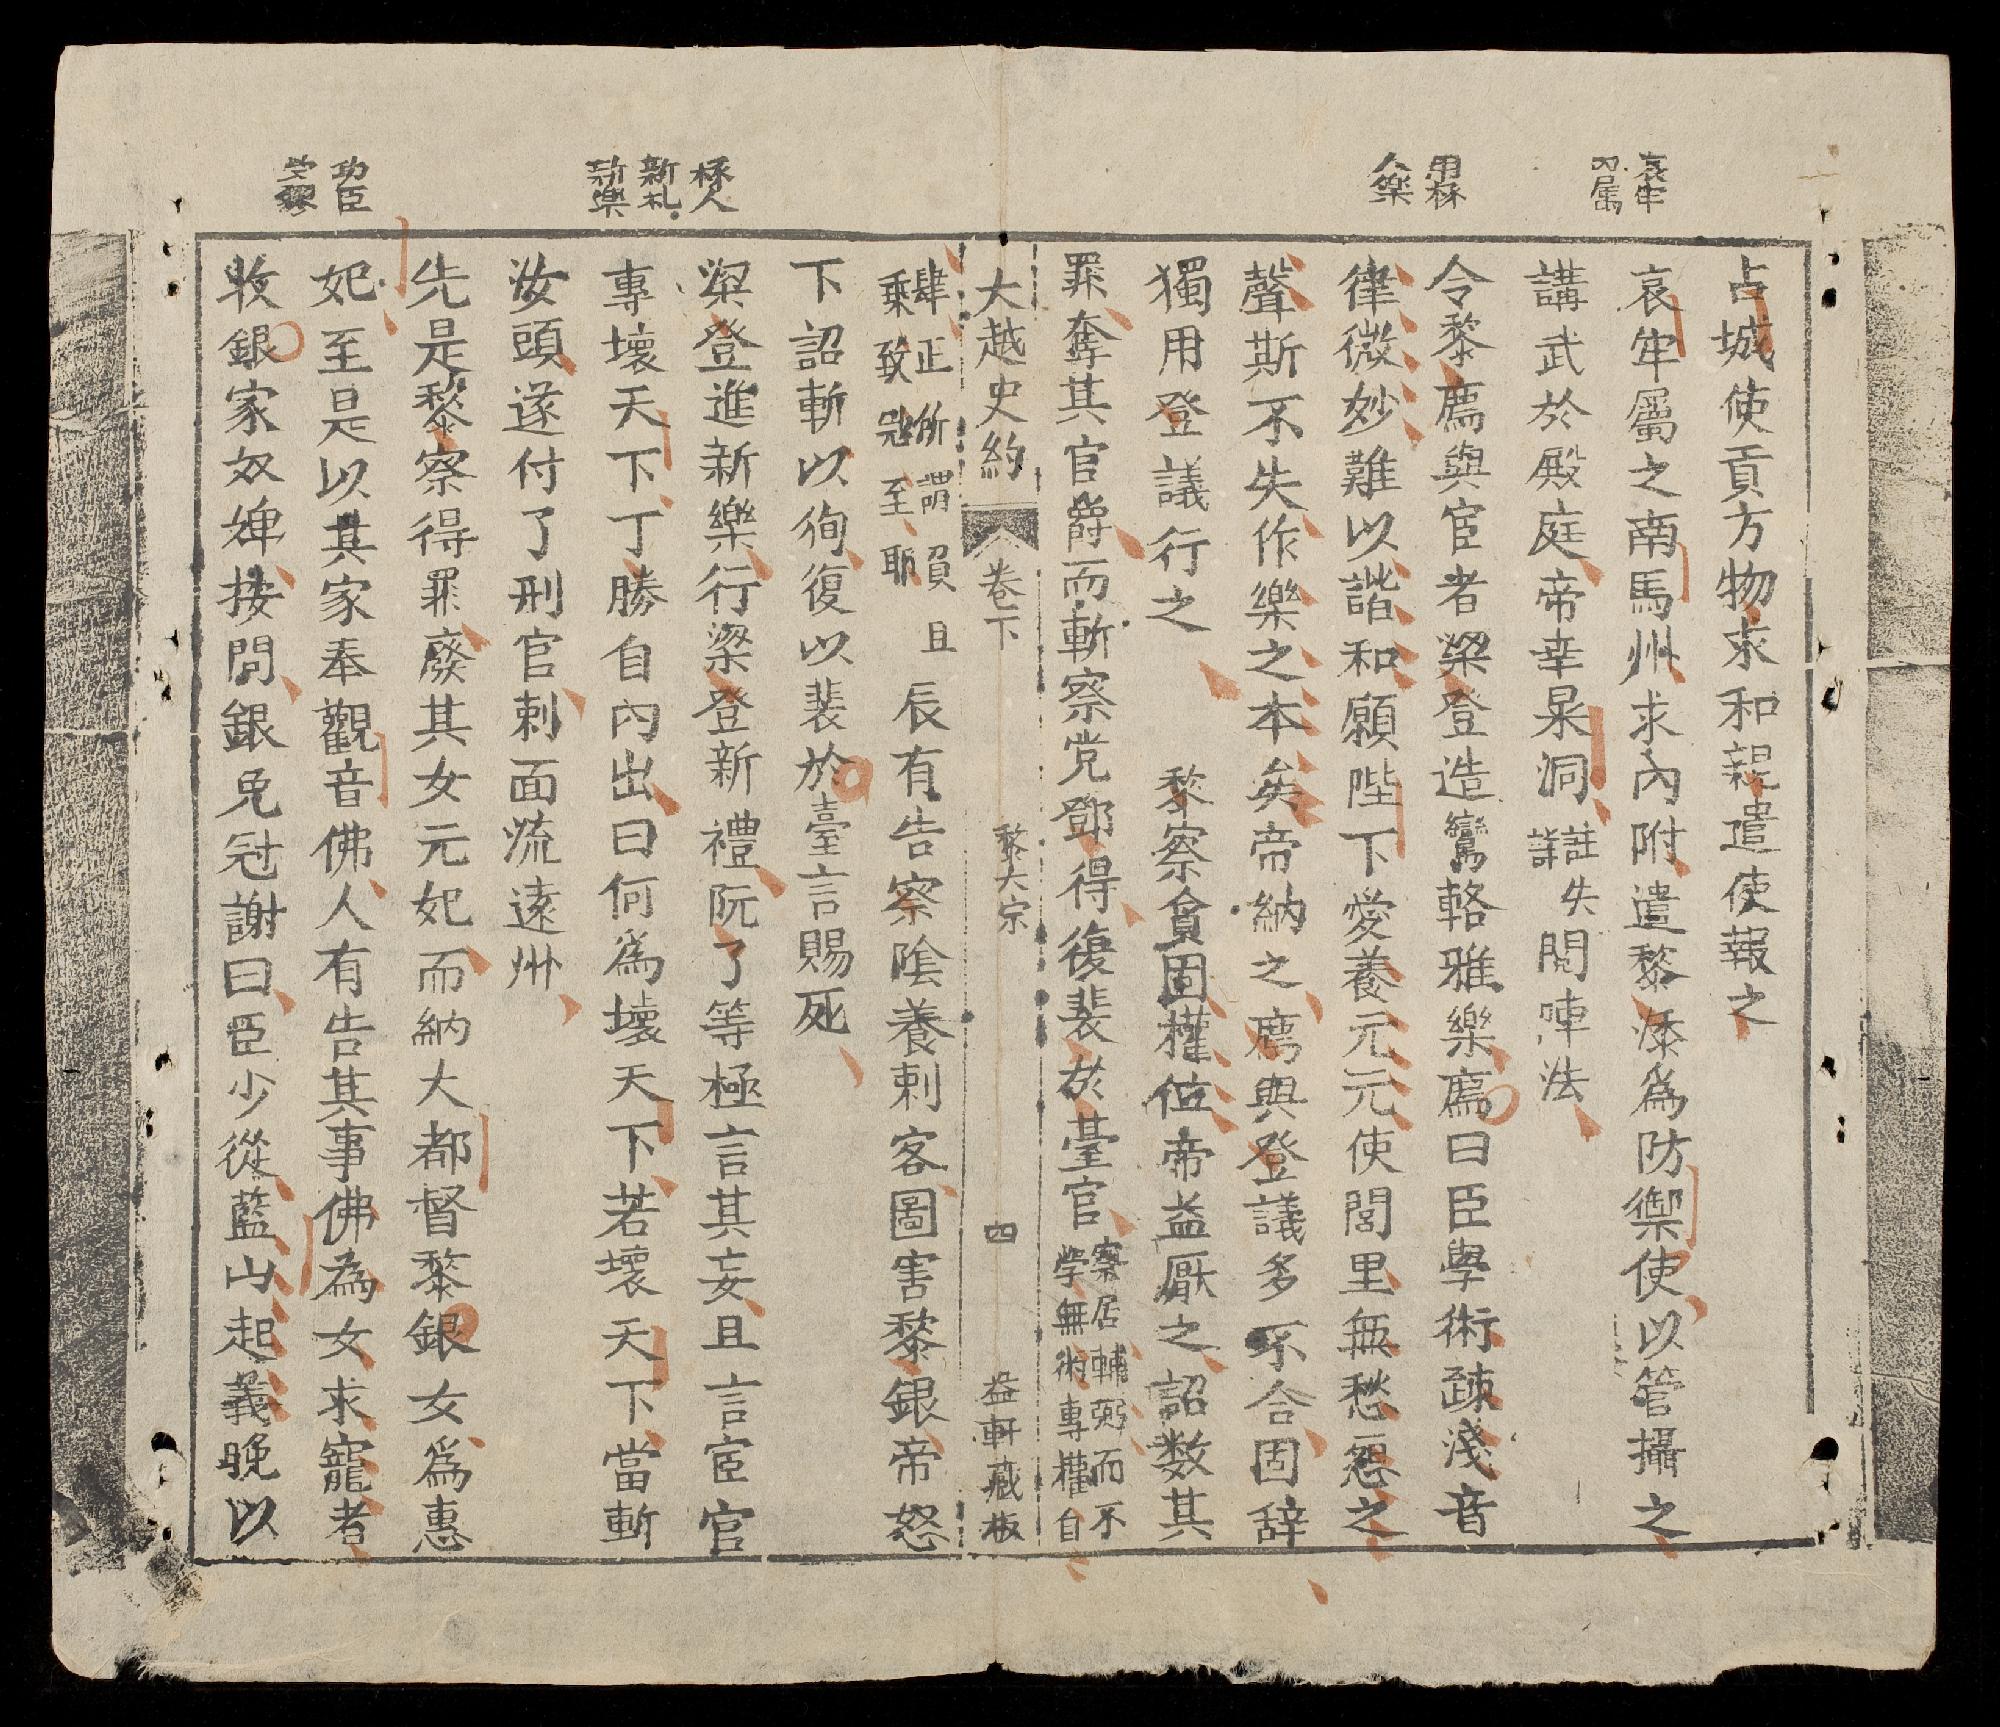 哀牢
內属
用宦
人樂
占城使貢方物求和親遣使報之
哀牢屬之南馬州求內附遣黎漆爲防禦使以管攝之
講武於殿庭帝幸杲洞註失
詳閱陣法
令黎廌與宦者梁登造鸞輅雅樂廌曰臣學術疎淺音
律微妙難以諧和願陛下愛養元元使閭里無愁怨之
聲斯不失作樂之本矣帝納之廌與登議多不合固辞
獨用登議行之　黎察貪固權位帝益厭之詔数其
罪奪其官爵而斬察党鄧得復裴於臺官察居輔弼而不
学無術專權自
大越史約　卷下　黎太宗　四　益軒藏板
肆正所謂負且
乗致寇至耶辰有告察陰養刺客圖害黎銀帝怒
下詔斬以徇復以裴於臺言賜死
梁登進新樂行梁登新禮阮了等極言其妄且言宦官
專壞天下丁勝自內出曰何爲壞天下若壞天下當斬
汝頭遂付了刑官剌面流遠州
先是黎察得罪廢其女元妃而納大都督黎銀女爲惠
妃至是以其家奉觀音佛人有告其事佛為女求寵者
收銀家奴婢按問銀免冠謝曰臣少從藍山起義晚以
極人
新礼
新樂
功臣